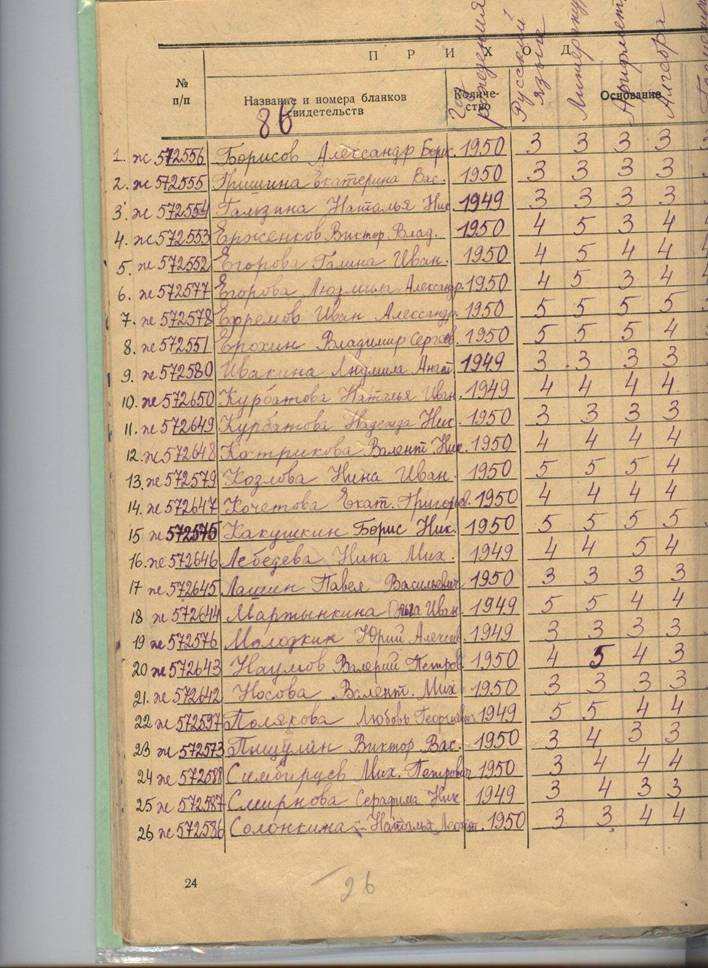 ПРИХОД
№ п/п
Название и номера бланков свидетельств
8б
Количество
Год рождения
Основание
Русский язык
Литерат
Арифмет
Алгебра
1. ж 572556 Борисов Александр Борис. 1950 3 3 3 3
2. ж 572555 Гришина Екатерина Вас. 1950 3 3 3 3
3. ж 572554 Гальзина Наталья Ник. 1949 3 3 3 3
4. ж 572553 Ерженков Виктор. Влад. 1950 4 5 3 4
5. ж 572552 Егорова Галина Иван. 1950 4 5 4 4
6. ж 572577 Егорова Людмила Александр. 1950 4 5 3 4
7. ж 572578 Ефремов Иван Александр. 1950 5 5 5 5
8. ж 572551 Ерохин Владимир Сергеев 1950 5 5 5 4
9. ж 572580 Ивакина Людмила Анат. 1949 3 3 3 3
10. ж 572650 Курбатова Наталья Иван. 1949 4 4 4 4
11. ж 572649 Курбатова Надежда Ник. 1950 3 3 3 3
12. ж 572648 Кострикова Валент. Ник. 1950 4 4 4 4
13. ж 572579 Козлова Нина Иван. 1950 5 5 5 4
14. ж 572647 Кочетова Екат. Григорьев. 1950 4 4 4 4
15 ж 572575 Какушкин Борис Ник. 1950 5 5 5 5
16. ж 572646 Лебедева Нина Мих. 1949 4 4 5 4
17 ж 572645 Лашин Павел Васильевич 1950 3 3 3 3
18 ж 572644 Мартынкина Иван. 1949 5 5 4 4
19 ж 572576 Молодкин Юрий Алексеев 1949 3 3 3 3
20 ж 572643 Наумов Валерий Петров. 1950 4 5 4 3
21. ж 572642 Носова Валент. Мих. 1950 3 3 3 3
22 ж 572597 Полякова Любовь Георгиевна 1949 5 5 4 4
23 ж 572573 Пищулин Виктор Вас. 1950 3 4 3 3
24 ж 572588 Симбирцев Мих. Петрович 1950 3 4 4 4
25 ж 572587 Смирнова Серафима Ник 1949 3 4 3 3
26 ж 572586 Солонкина Наталья Леонт. 1950 3 3 4 4
24
26